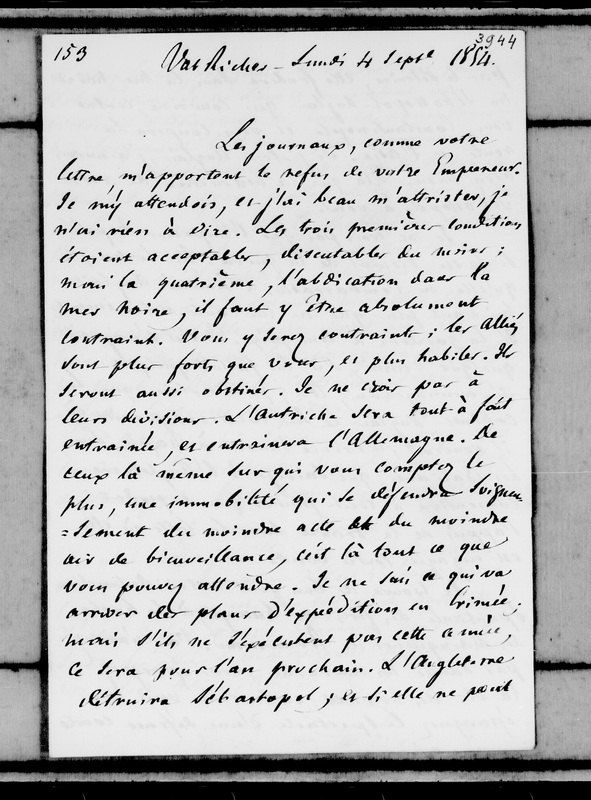 153
3944
Val Richer - Lundi 4 Septe 1854.
Les journaux, comme votre
lettre m'apportent le refus de votre Empereur.
Je m'y attendois, et j'ai beau m'attrister, je
n'ai rien à dire. Les trois premières conditions
étoient acceptables, discutables du moins ;
mais la quatrième, l'abdication dans la
mer noire, il faut y être absolument
contraint. Vous y serez contraints ; les Alliés
sont plus forts que vous, et plus habiles. Ils
seront aussi obstinés. Je ne crois pas à
leurs divisions. L'Autriche sera tout-à-fait
entrainée, et entrainera l'Allemagne. De
ceux là même sur qui vous comptez le
plus, une immobilité qui se défendra soigneu-
=sement du moindre acte et du moindre
air de bienveillance, c'est là tout ce que
vous pouvez attendre. Je ne sais ce qui va
arriver des plans d'expédition en Crimée ;
mais s'ils ne s'exécutent pas cette année,
ce sera pour l'an prochain. L'Angleterre
détruira Sébastopol ; et si elle ne peut